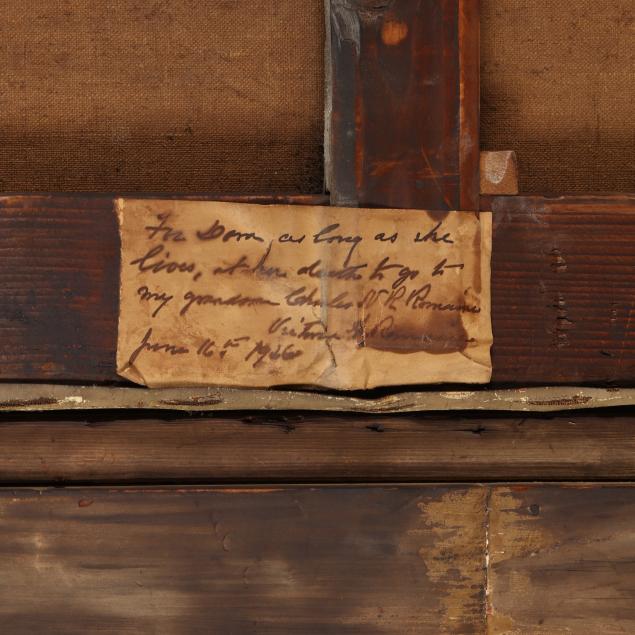 For Dora, as long as she
lives, at her death to go to
my grandson Charles N R Romaine
Romaine
June 16th